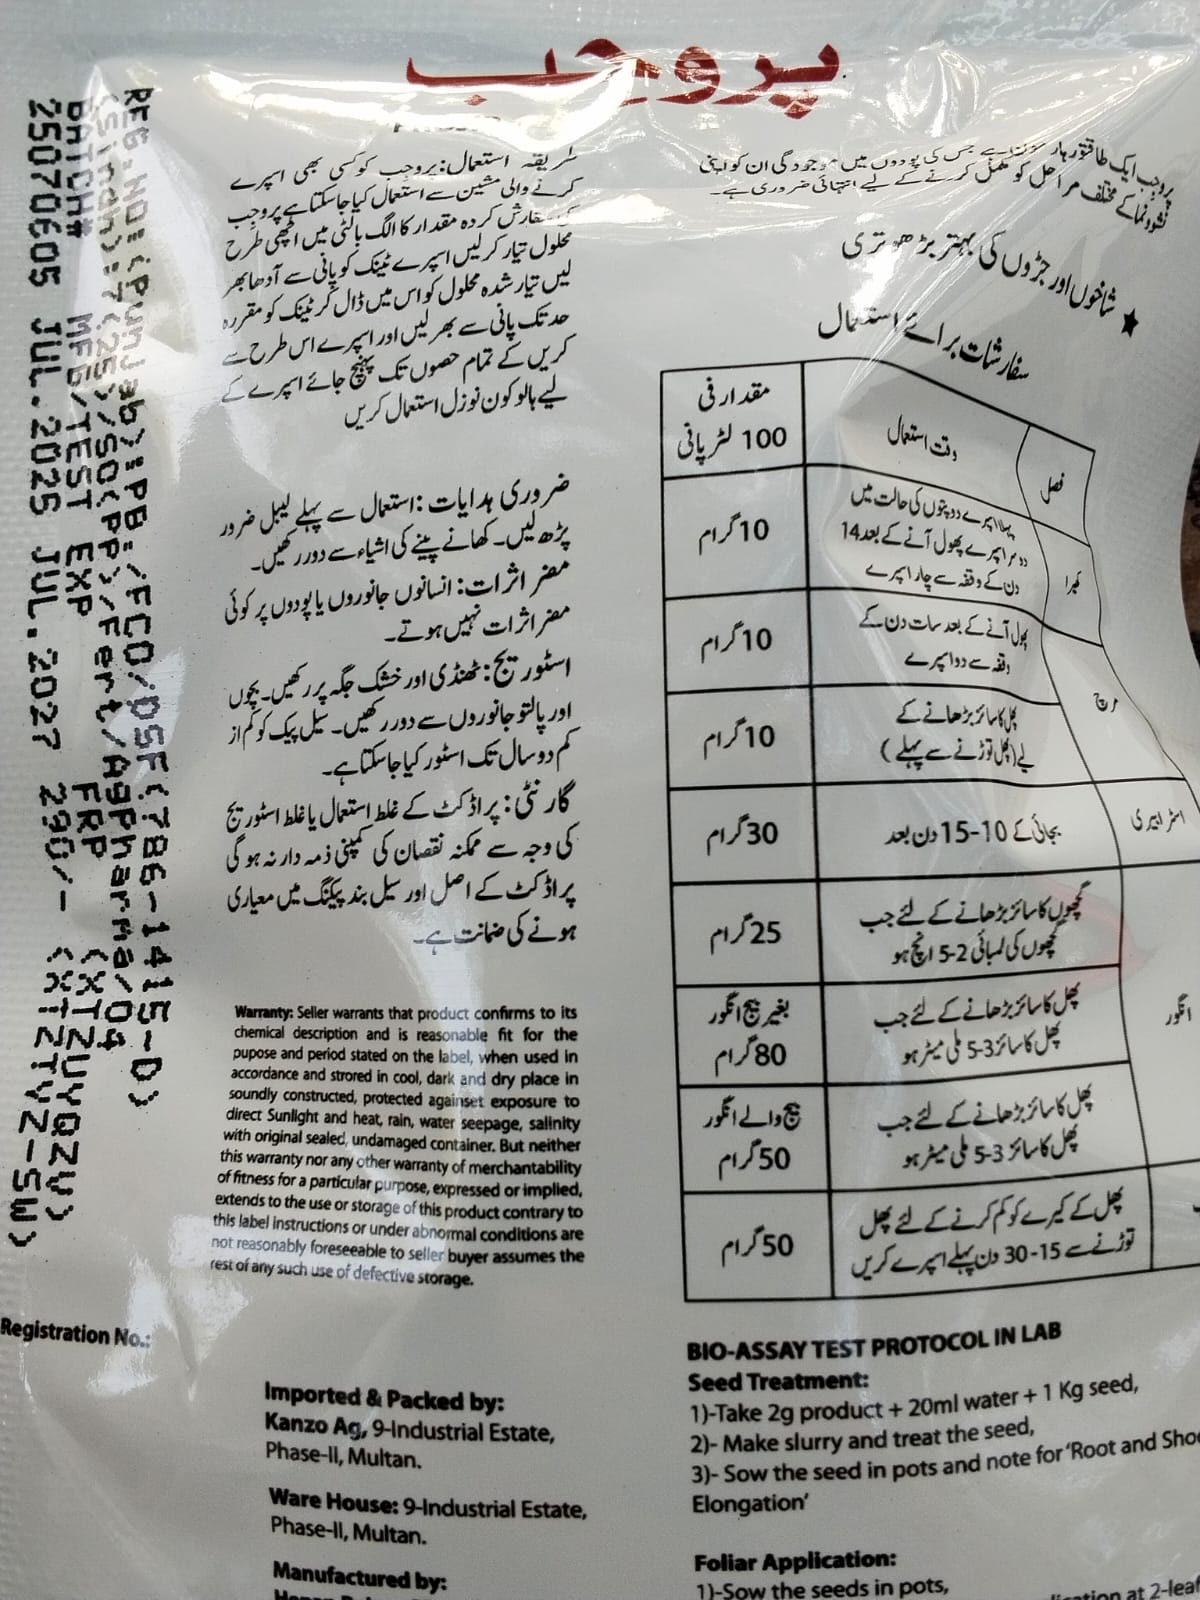 پروجب
پروجب ایک طاقتور ہارمون ہے جس کی پودوں میں موجودگی ان کو اپنی
نشوونما کے مختلف مراحل کو مکمل کرنے کے لیے انتہائی ضروری ہے۔
★ شاخوں اور جڑوں کی بہتر بڑھوتری
سفارشات برائے استعمال
فصل وقت استعمال مقدار فی
100 لٹر پانی
کھیرا پہلا اسپرے دو پتوں کی حالت میں
دوسرا اسپرے پھول آنے کے بعد 14
دن کے وقفہ سے چار اسپرے
10 گرام
مرچ پھول آنے کے بعد سات دن کے
وقفہ سے دو اسپرے
10 گرام
پھل کا سائز بڑھانے کے
لیے (پھل توڑنے سے پہلے)
10 گرام
اسٹرابیری بجائی کے 10-15 دن بعد 30 گرام
انگور گچھوں کا سائز بڑھانے کے لئے جب
گچھوں کی لمبائی 2-5 انچ ہو
25 گرام
پھل کا سائز بڑھانے کے لئے جب
پھل کا سائز 3-5 ملی میٹر ہو
بغیر بیج انگور
80 گرام
پھل کا سائز بڑھانے کے لئے جب
پھل کا سائز 3-5 ملی میٹر ہو
بیج والے انگور
50 گرام
پھل کے کیرے کو کم کرنے کے لئے پھل
توڑنے سے 15-30 دن پہلے اسپرے کریں
50 گرام
BIO-ASSAY TEST PROTOCOL IN LAB
Seed Treatment:
1)-Take 2g product + 20ml water + 1 Kg seed,
2)- Make slurry and treat the seed,
3)- Sow the seed in pots and note for 'Root and Shoo
Elongation'
Foliar Application:
1)-Sow the seeds in pots,
at 2-leaf
طریقہ استعمال: پروجب کو کسی بھی اسپرے
کرنے والی مشین سے استعمال کیا جا سکتا ہے پروجب
کی سفارش کردہ مقدار کا الگ بالٹی میں اچھی طرح
محلول تیار کر لیں اسپرے ٹینک کو پانی سے آدھا بھر
لیں تیار شدہ محلول کو اس میں ڈال کر ٹینک کو مقررہ
حد تک پانی سے بھر لیں اور اسپرے اس طرح سے
کریں کے تمام حصوں تک پہنچ جائے اسپرے کے
لیے ہالو کون نوزل استعمال کریں
ضروری ہدایات: استعمال سے پہلے لیبل ضرور
پڑھ لیں۔ کھانے پینے کی اشیاء سے دور رکھیں۔
مضر اثرات: انسانوں جانوروں یا پودوں پر کوئی
مضر اثرات نہیں ہوتے۔
اسٹوریج: ٹھنڈی اور خشک جگہ پر رکھیں۔ بچوں
اور پالتو جانوروں سے دور رکھیں۔ سیل پیک کو کم از
کم دو سال تک اسٹور کیا جا سکتا ہے۔
گارنٹی: پراڈکٹ کے غلط استعمال یا غلط اسٹوریج
کی وجہ سے ممکنہ نقصان کی کمپنی ذمہ دار نہ ہو گی
پراڈکٹ کے اصل اور سیل بند پیکنگ میں معیاری
ہونے کی ضمانت ہے۔
Warranty: Seller warrants that product confirms to its
chemical description and is reasonable fit for the
pupose and period stated on the label, when used in
accordance and strored in cool, dark and dry place in
soundly constructed, protected againset exposure to
direct Sunlight and heat, rain, water seepage, salinity
with original sealed, undamaged container. But neither
this warranty nor any other warranty of merchantability
of fitness for a particular purpose, expressed or implied,
extends to the use or storage of this product contrary to
this label instructions or under abnormal conditions are
not reasonably foreseeable to seller buyer assumes the
rest of any such use of defective storage.
Registration No.:
Imported & Packed by:
Kanzo Ag, 9-Industrial Estate,
Phase-II, Multan.
Ware House: 9-Industrial Estate,
Phase-II, Multan.
Manufactured by:
REG.NO:(Punjab):PB:/FCO/DSF(786-1415-D)
(Sindh):7(25)/SO(PP)/Fert/AgPharma/04
BATCH# MFG/TEST EXP FRP (XTZUYQZV)
25070605 JUL.2025 JUL.2027 290/- (XTZTYZ-SW)